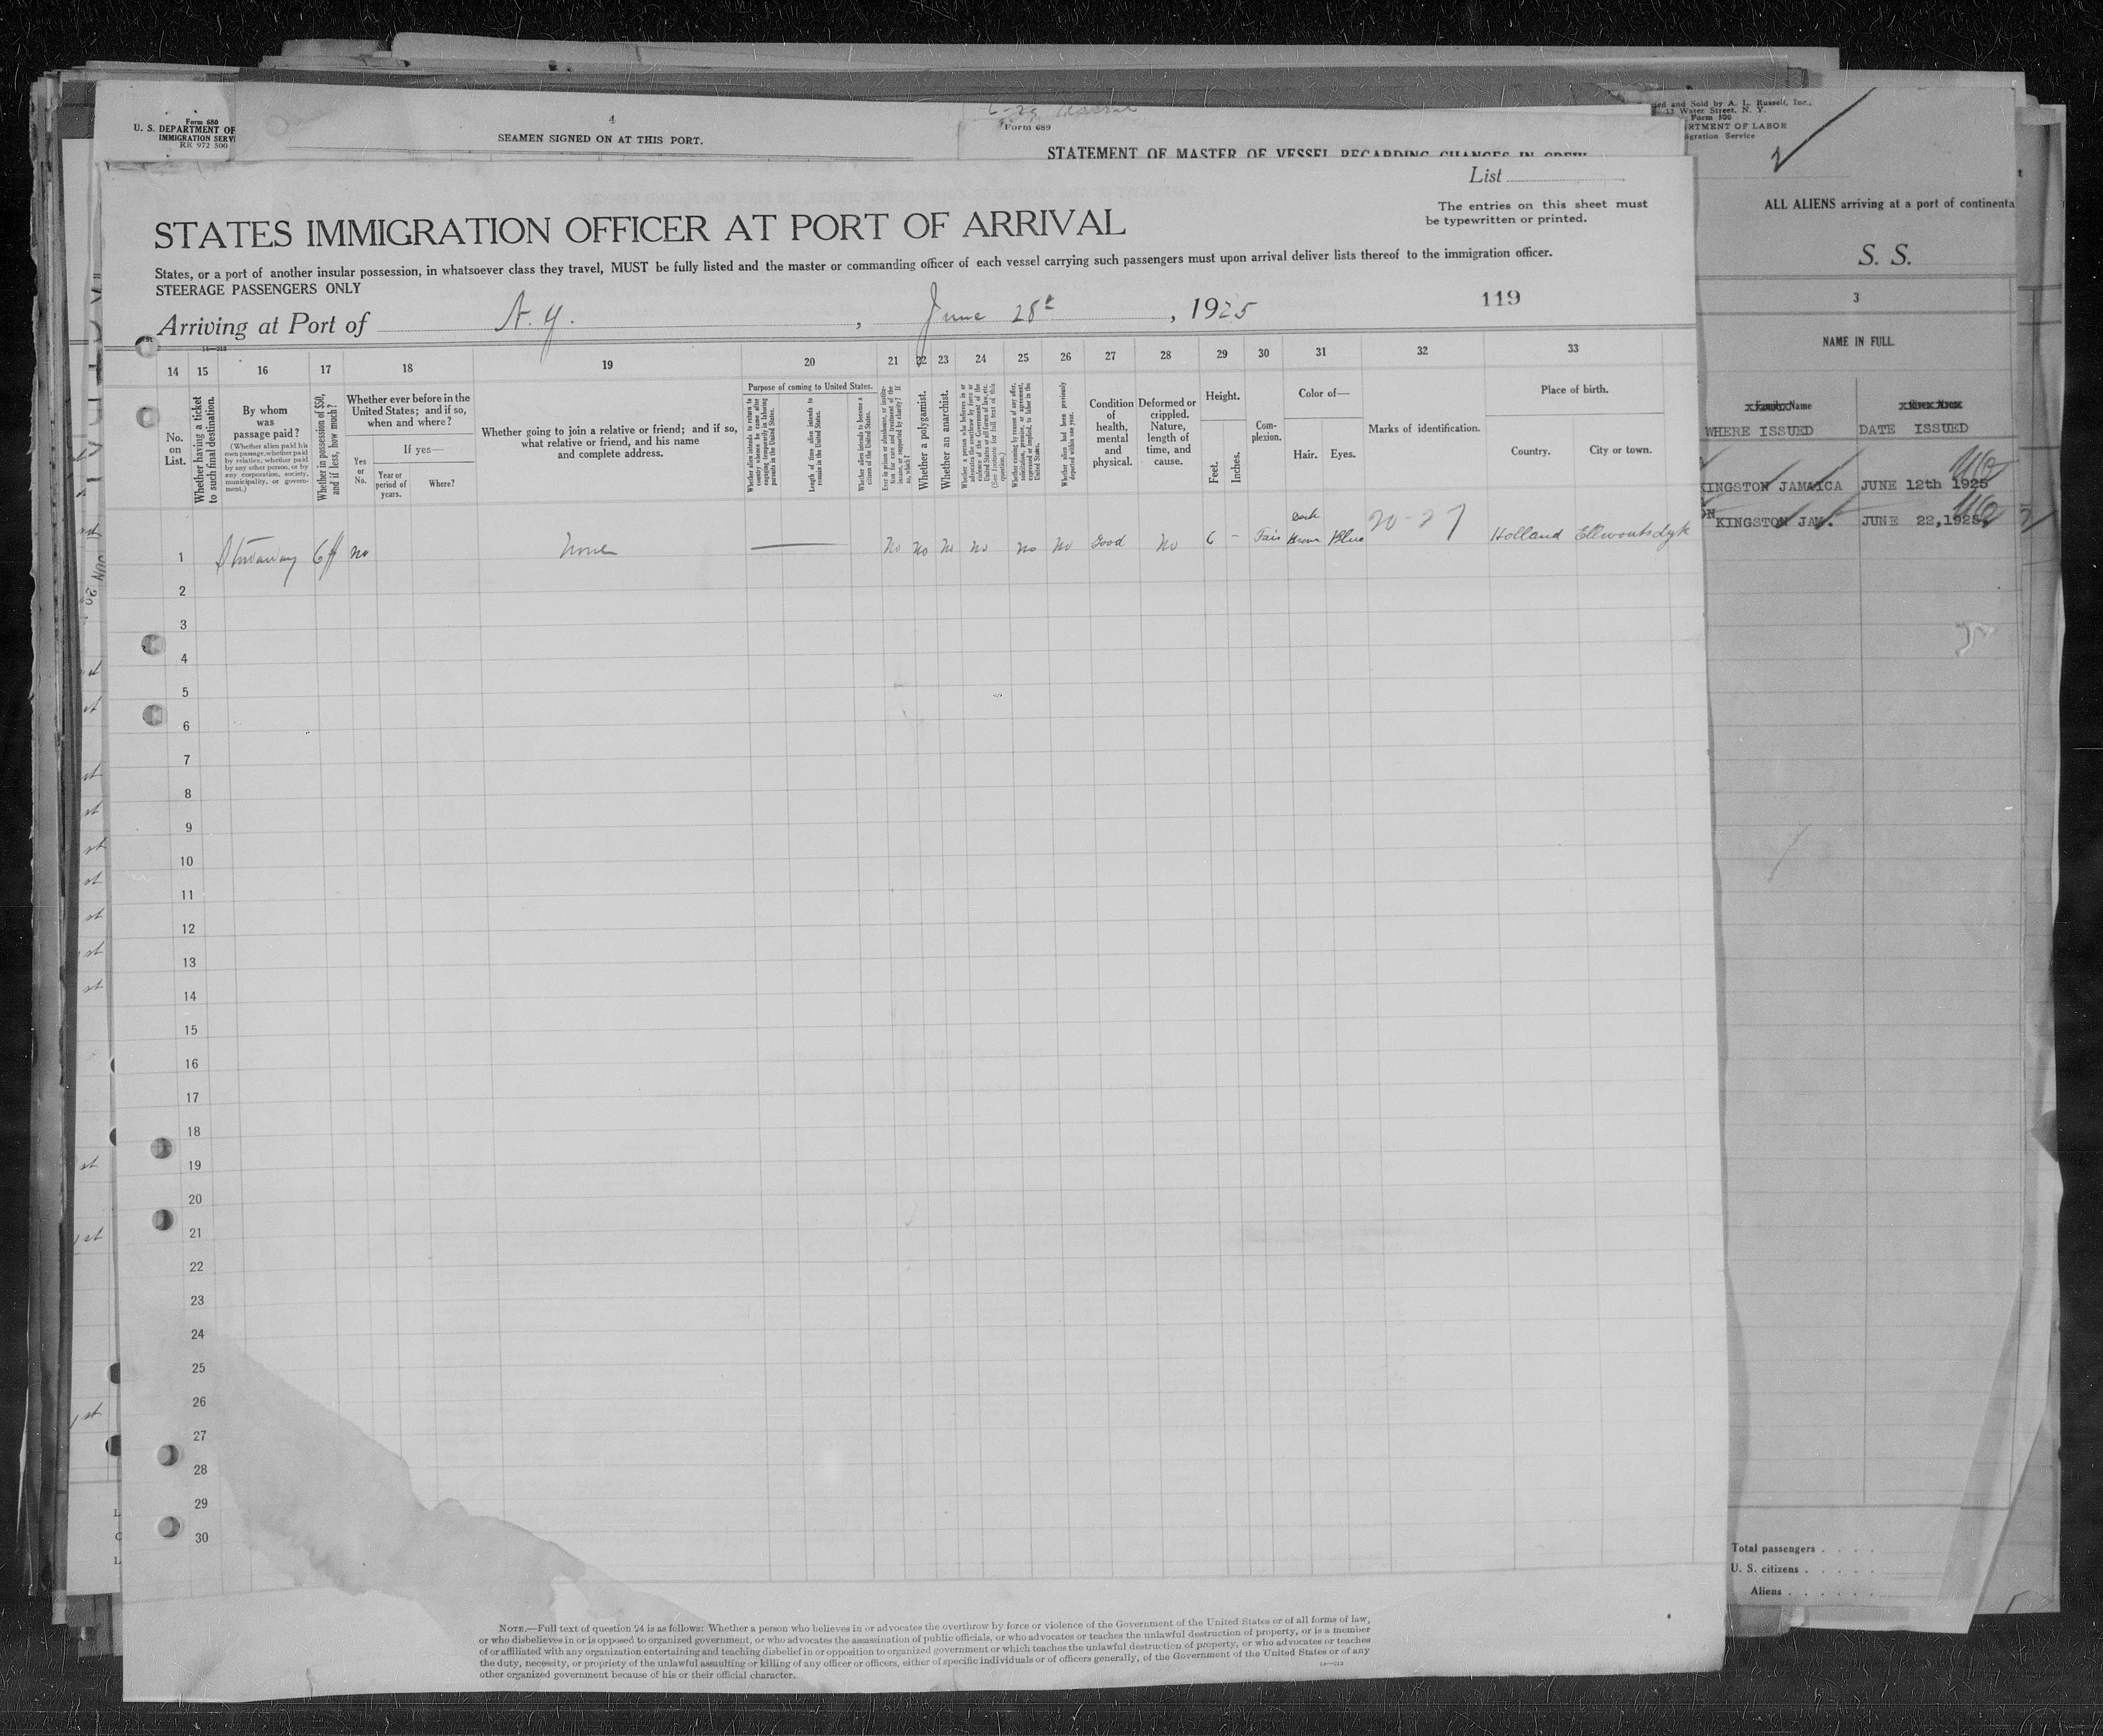 Form 680
U. S. DEPARTMENT OF
IMMIGRATION SERVI
RR 972 500
4
SEAMEN SIGNED ON AT THIS PORT.
Form 689
STATEMENT OF MASTER OF VESSEL REGARDING CHANGES IN CREW
List
The entries on this sheet must
be typewritten or printed.
STATES IMMIGRATION OFFICER AT PORT OF ARRIVAL
States, or a port of another insular possession, in whatsoever class they travel, MUST be fully listed and the master or commanding officer of each vessel carrying such passengers must upon arrival deliver lists thereof to the immigration officer.
STEERAGE PASSENGERS ONLY
Arriving at Port of N. Y. , June 28t , 1925
119
14 15 16 17 18 19 20 21 22 23 24 25 26 27 28 29 30 31 32 33
No. on List.
Whether having a ticket to such final destination.
By whom was passage paid?
(Whether alien paid his own passage, whether paid by relative, whether paid by any other person, or by any corporation, society, municipality, or government.)
Whether in possession of $50, and if less, how much?
Whether ever before in the United States; and if so, when and where?
Yes or No.
If yes—
Year or period of years.
Where?
Whether going to join a relative or friend; and if so, what relative or friend, and his name and complete address.
Purpose of coming to United States.
Whether alien intends to return to country whence he came after engaging temporarily in laboring pursuits in the United States.
Length of time alien intends to remain in the United States.
Whether alien intends to become a citizen of the United States.
Ever in prison or almshouse, or institution for care and treatment of the insane, or supported by charity? If so, which?
Whether a polygamist.
Whether an anarchist.
Whether a person who believes in or advocates the overthrow by force or violence of the Government of the United States or all forms of law, etc. (See footnote for full text of this question.)
Whether coming by reason of any offer, solicitation, promise, or agreement, expressed or implied, to labor in the United States.
Whether alien had been previously deported within one year.
Condition of health, mental and physical.
Deformed or crippled. Nature, length of time, and cause.
Height.
Feet. Inches.
Complexion.
Color of—
Hair. Eyes.
Marks of identification.
Place of birth.
Country. City or town.
1 Stowaway 6 ff no none No no No no no No Good No 6 – Fair Dark Brown Blue 20-27 Holland Ellewoutsdyk
2
3
4
5
6
7
8
9
10
11
12
13
14
15
16
17
18
19
20
21
22
23
24
25
26
27
28
29
30
NOTE.—Full text of question 24 is as follows: Whether a person who believes in or advocates the overthrow by force or violence of the Government of the United States or of all forms of law,
or who disbelieves in or is opposed to organized government, or who advocates the assassination of public officials, or who advocates or teaches the unlawful destruction of property, or is a member
of or affiliated with any organization entertaining and teaching disbelief in or opposition to organized government or which teaches the unlawful destruction of property, or who advocates or teaches
the duty, necessity, or propriety of the unlawful assaulting or killing of any officer or officers, either of specific individuals or of officers generally, of the Government of the United States or of any
other organized government because of his or their official character.
14—213
ed and Sold by A. L. Russell, Inc.,
13 Water Street, N. Y.
Form 500
RTMENT OF LABOR
igration Service
ALL ALIENS arriving at a port of continenta
S. S.
3
NAME IN FULL.
Family Name
WHERE ISSUED DATE ISSUED
KINGSTON JAMAICA JUNE 12th 1925
KINGSTON JAM. JUNE 22,1925
Total passengers
U. S. citizens
Aliens